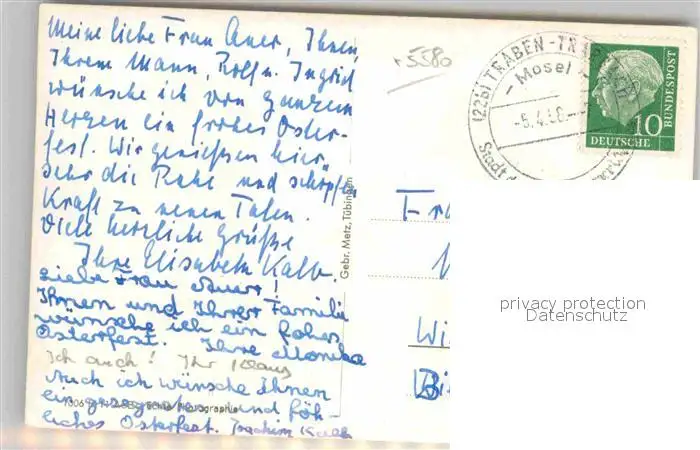 Meine liebe Frau Auer, Ihnen,
Ihrem Mann, Rolf u. Ingrid
wünsche ich von ganzem
Herzen ein frohes Oster-
fest. Wir genießen hier
sehr die Ruhe und schöpfen
Kraft zu neuen Taten.
Viele herzliche Grüße
Ihre Elisabeth Kalb.
Liebe Frau Auer!
Ihnen und Ihrer Familie
wünsche ich ein frohes
Osterfest. Ihre Monika
Ich auch! Ihr Klaus
Auch ich wünsche Ihnen
ein und fröh-
liches Osterfest. Joachim Kalb
Gebr. Metz, Tübingen
5580
(22b) TRABEN-TRARBACH
- Mosel -
-5.4.58.-
Stadt
10
DEUTSCHE
BUNDESPOST
Fr
Wi
privacy protection
Datenschutz